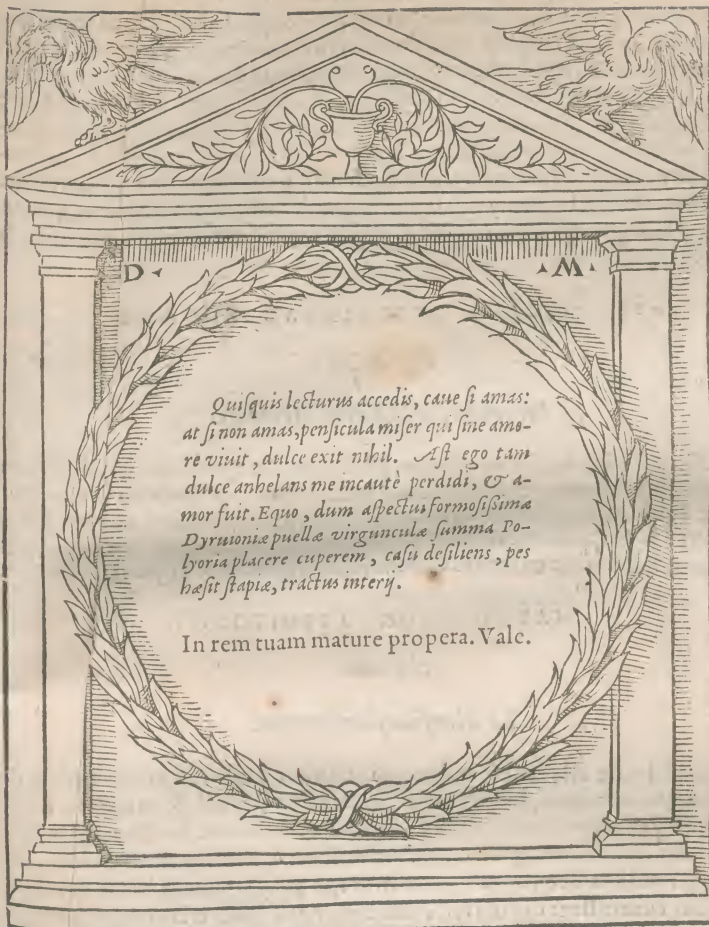 D ◂ ▴M▴
Quiſquis lecturus accedis, caue ſi amas:
at ſi non amas, penſicula miſer qui ſine amo-
re viuit, dulce exit nihil. Aſt ego tam
dulce anhelans me incautè perdidi, & a-
mor fuit. Equo, dum aſpectui formoſiſsimæ
Dyruioniæ puellæ virgunculæ ſumma Po-
lyoria placere cuperem, caſu deſiliens, pes
hæſit ſtapiæ, tractus interij.
In rem tuam mature propera. Vale.